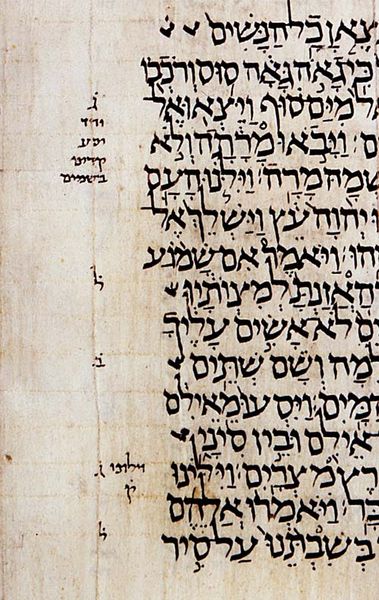 צֶאןָ כָל־הַנָּשִׁים
כִּי־גָאֹה גָּאָה סוּס וְרֹכְבוֹ
אֵל מִיַּם־סוּף וַיֵּצְאוּ אֶל־
ים׃ וַיָּבֹאוּ מָרָתָה וְלֹא
שְׁמָהּ מָרָה׃ וַיִּלֹּנוּ הָעָם
וּ יְהוָה עֵץ וַיַּשְׁלֵךְ אֶל־
הוּ׃ וַיֹּאמֶר אִם־שָׁמוֹעַ
הַאֲזַנְתָּ לְמִצְוֹתָיו
ים לֹא־אָשִׂים עָלֶיךָ
למָה וְשָׁם שְׁתֵּים
הַמָּיִם׃ וַיִּסְעוּ מֵאֵילִם
אֵילִם וּבֵין סִינָי
רֶץ מִצְרָיִם׃ וַיִּלִּינוּ
בָּר׃ וַיֹּאמְרוּ אֲלֵהֶם
בְּשִׁבְתֵּנוּ עַל־סִיר
ג
יסע
קדים
בשמים
ל
ב
וילונו ג
ק
ל